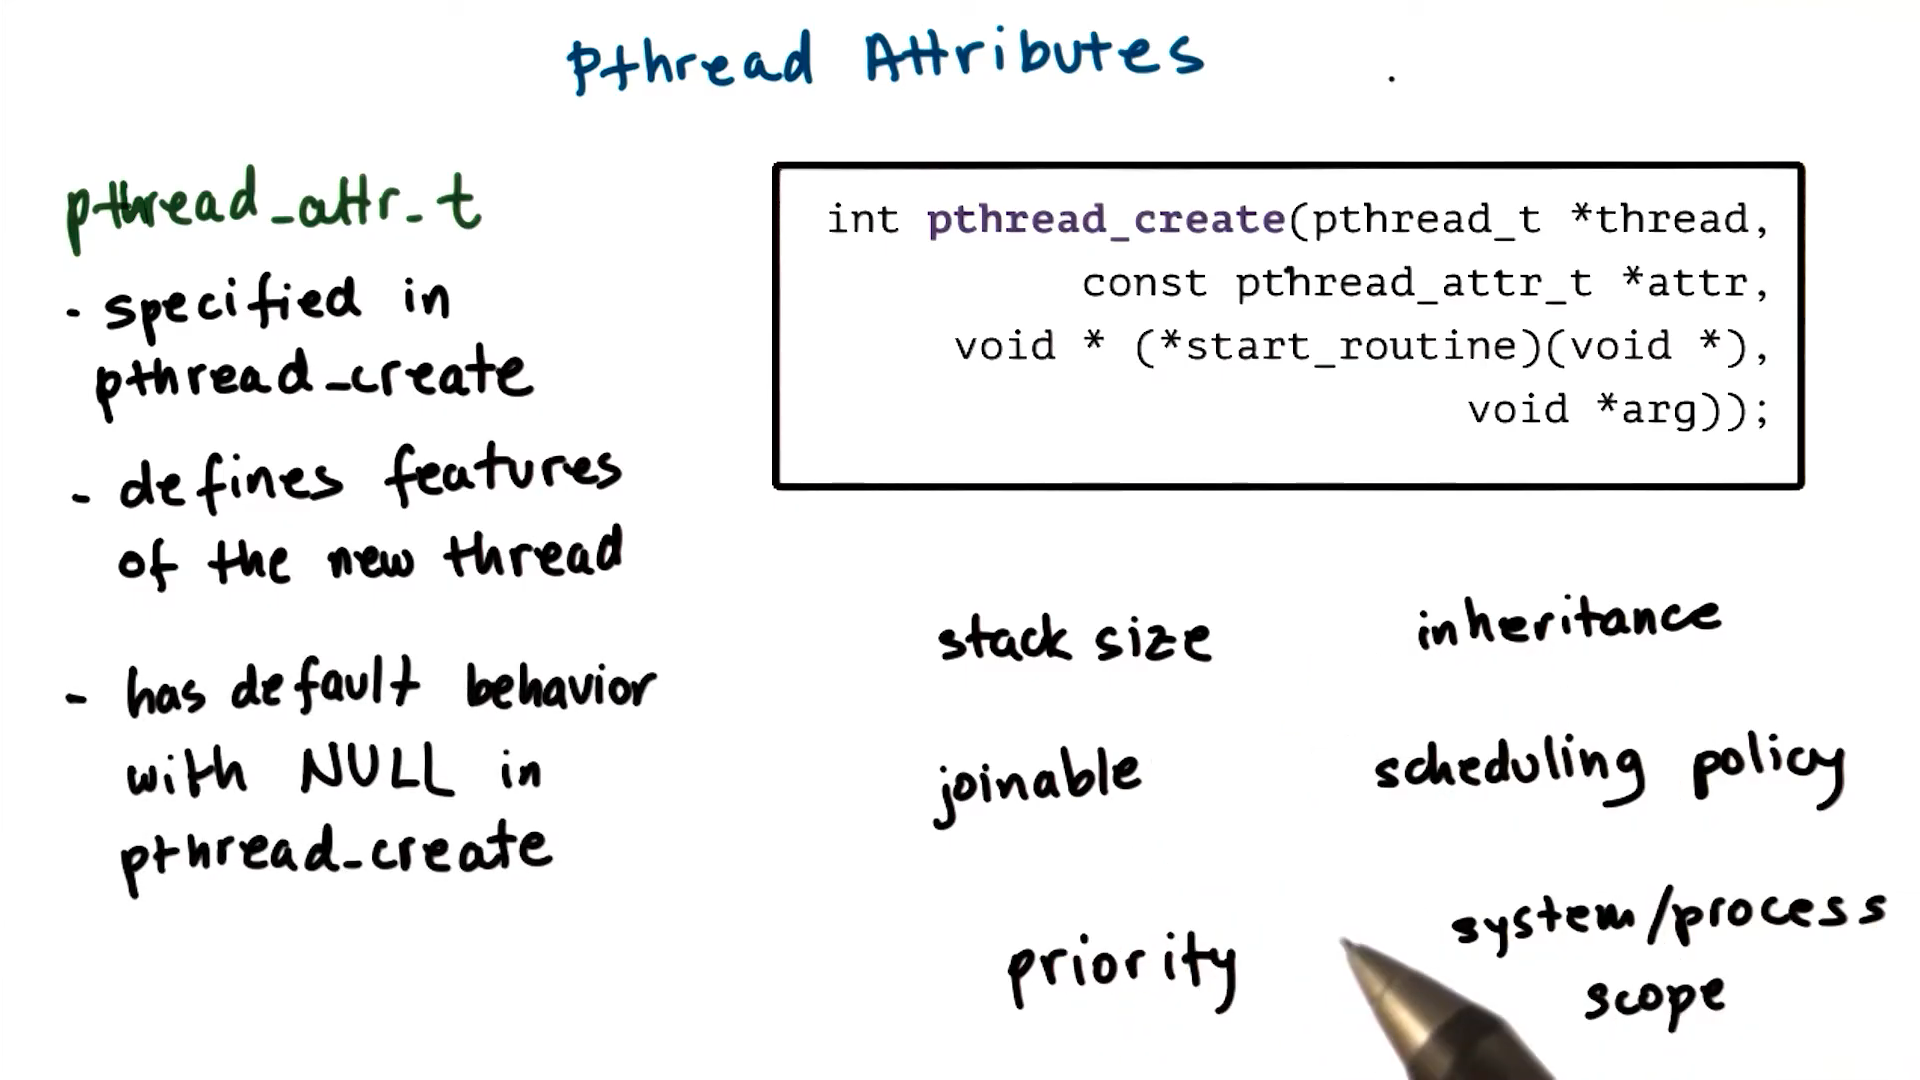 Pthread Attributes
pthread_attr_t
- specified in
pthread_create
- defines features
of the new thread
- has default behavior
with NULL in
pthread_create
int pthread_create(pthread_t *thread,
const pthread_attr_t *attr,
void * (*start_routine)(void *),
void *arg));
stack size
inheritance
joinable
scheduling policy
priority
system/process
scope